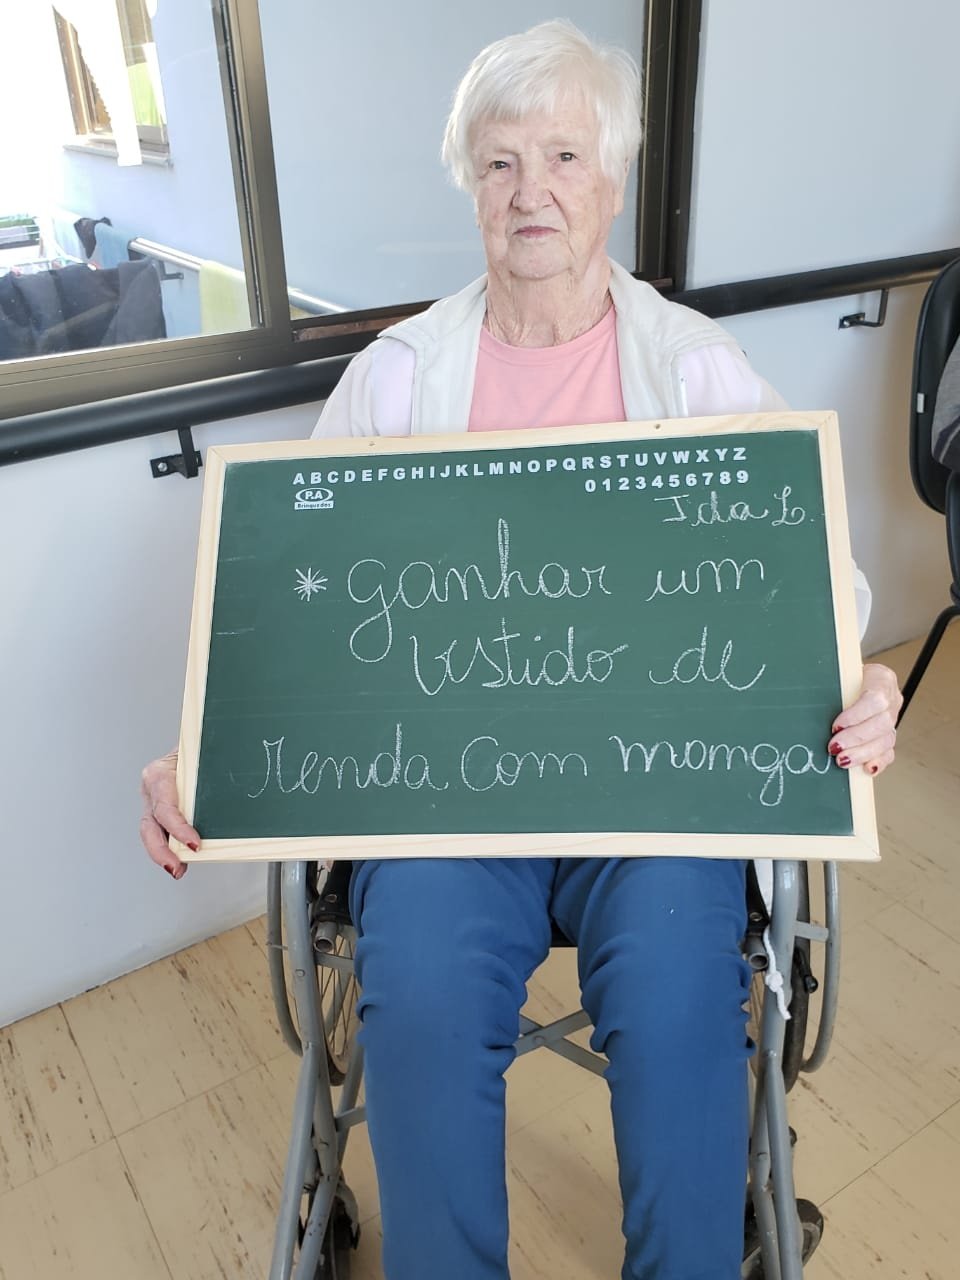 ABCDEFGHIJKLMNOPQRSTUVWXYZ
0123456789
P.A
Brinquedos
Ida L.
* ganhar um
vestido de
renda com momga